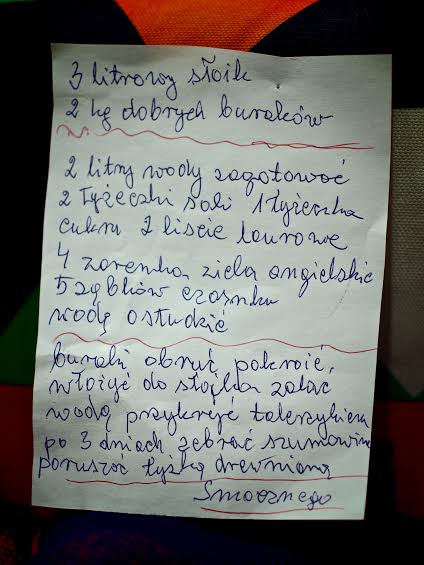 3 litrowy słoik
2 kg dobrych buraków
2 litry wody zagotować
2 łyżeczki soli 1 łyżeczka
cukru 2 liście laurowe
4 zarenka ziela angielskie
5 ząbków czosnku
wodę ostudzić
buraki obrać pokroić,
włożyć do słojka zalać
wodą przykryć talerzykiem
po 3 dniach zebrać szumowine
poruszać łyską drewnianą
Smacznego